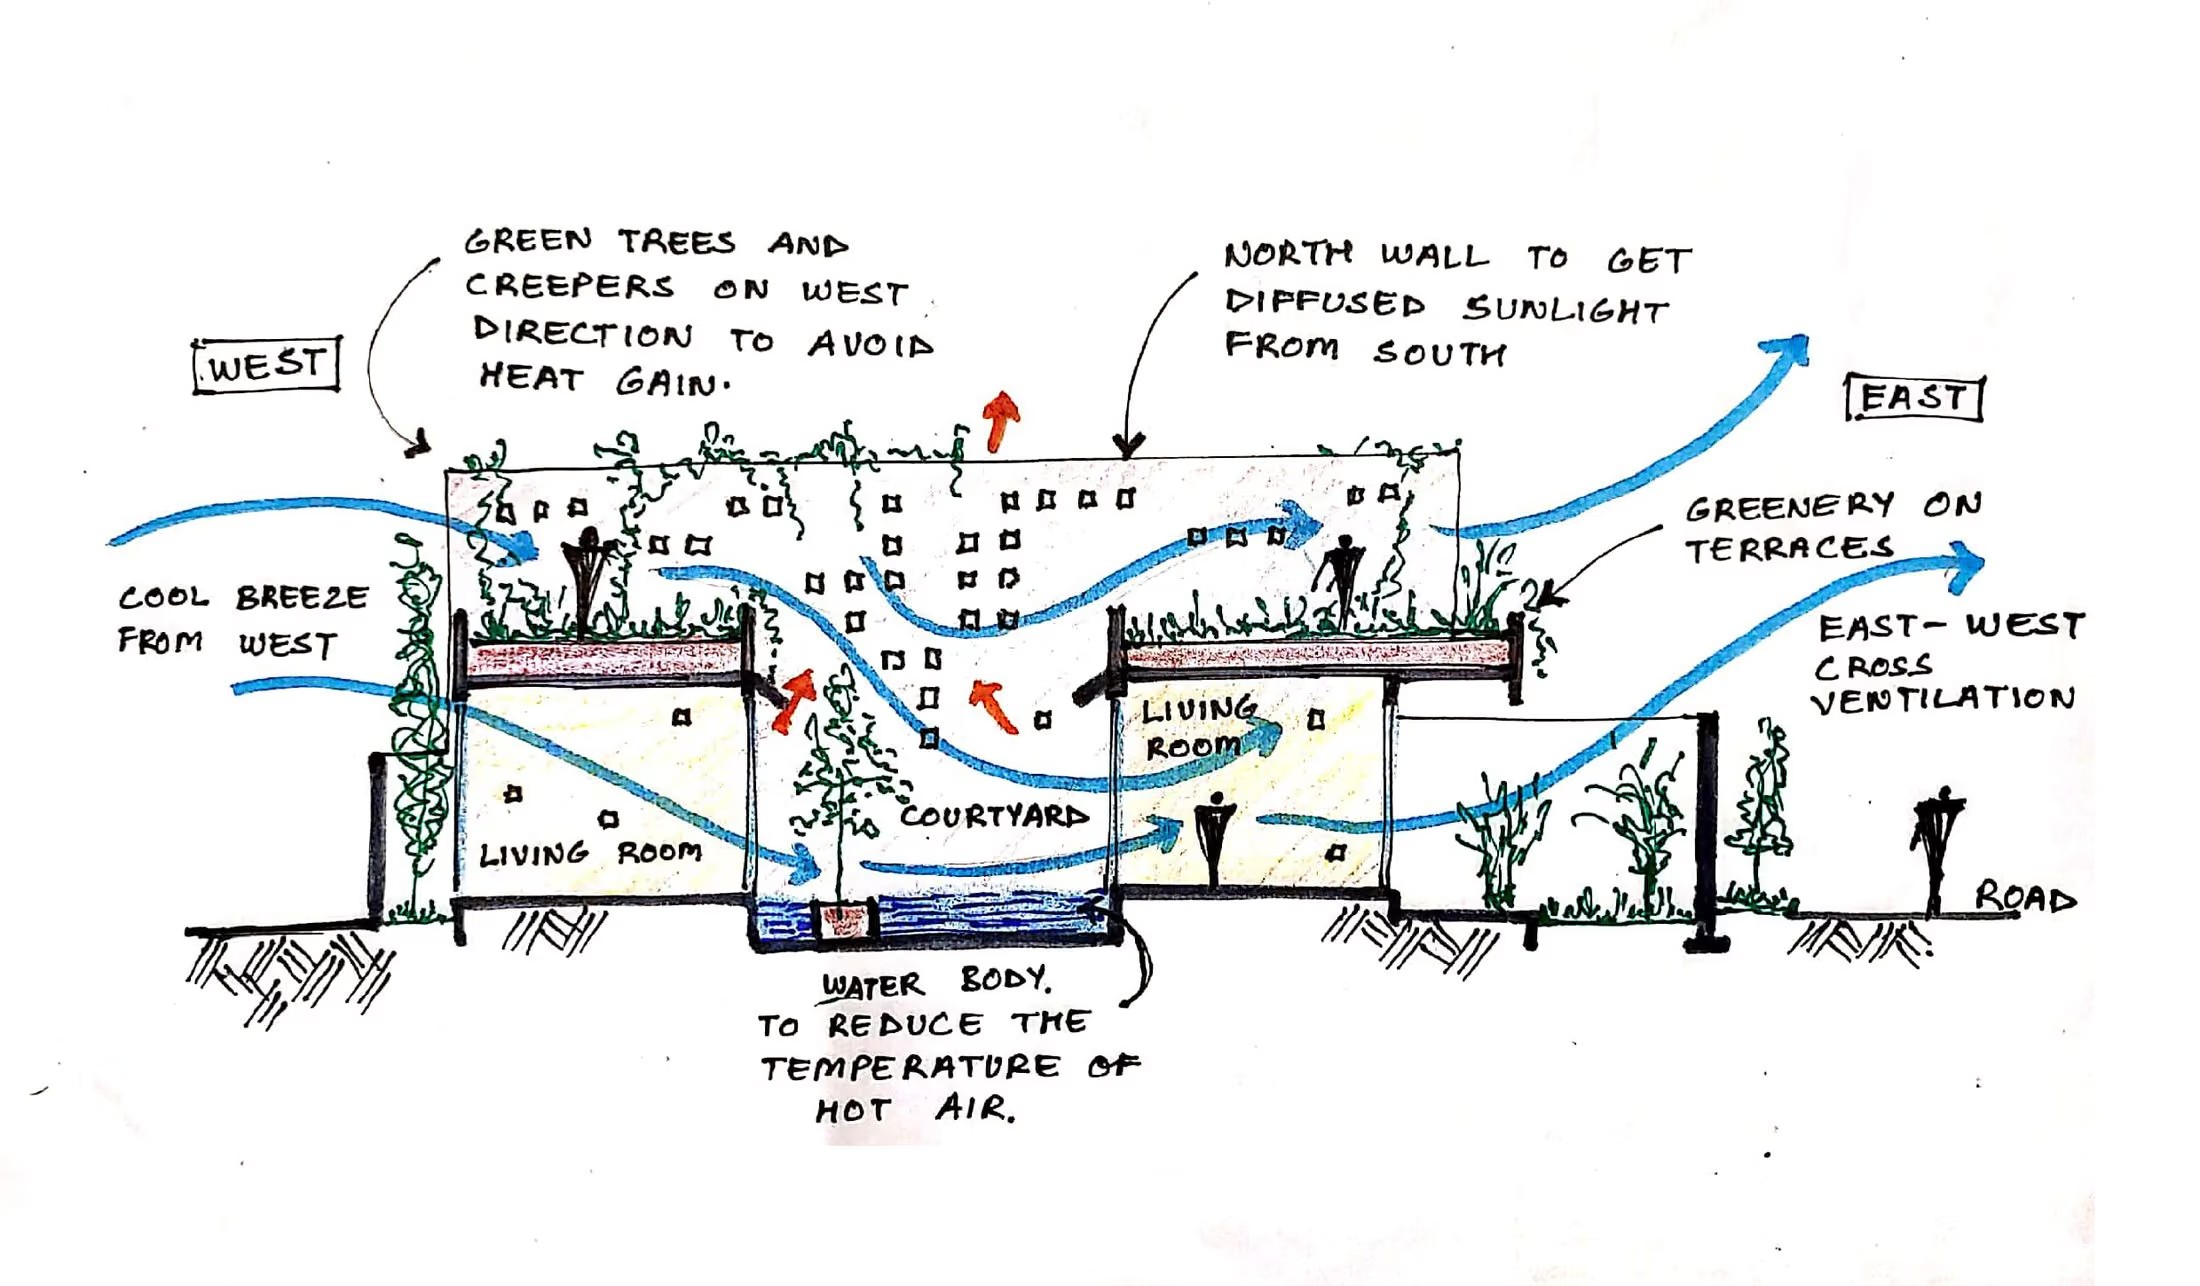 GREEN TREES AND
CREEPERS ON WEST
DIRECTION TO AVOID
HEAT GAIN.
NORTH WALL TO GET
DIFFUSED SUNLIGHT
FROM SOUTH
WEST
EAST
GREENERY ON
TERRACES
COOL BREEZE
FROM WEST
EAST-WEST
CROSS
VENTILATION
LIVING
ROOM
COURTYARD
LIVING ROOM
ROAD
WATER BODY.
TO REDUCE THE
TEMPERATURE OF
HOT AIR.